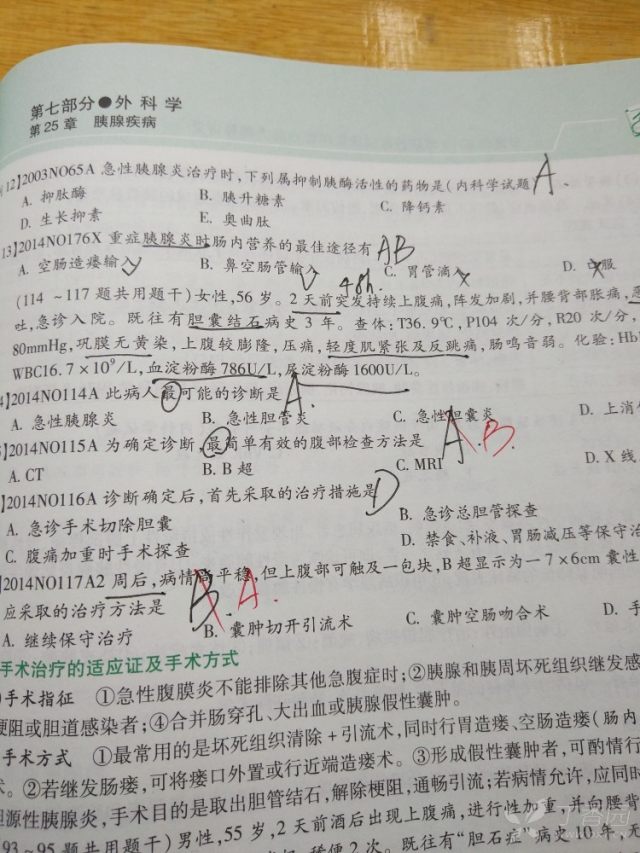 第七部分●外科学
第25章 胰腺疾病
12】2003NO65A 急性胰腺炎治疗时,下列属抑制胰酶活性的药物是(内科学试题 A.
A. 抑肽酶 B. 胰升糖素 C. 降钙素
D. 生长抑素 E. 奥曲肽
13】2014NO176X 重症胰腺炎时肠内营养的最佳途径有 AB
A. 空肠造瘘输入 B. 鼻空肠管输入 C. 胃管滴入 D. 口服
48h.
(114 ~117 题共用题干)女性,56 岁。2 天前突发持续上腹痛,阵发加剧,并腰背部胀痛,恶
吐,急诊入院。既往有胆囊结石病史 3 年。查体:T36.9℃,P104 次/分,R20 次/分,
80mmHg,巩膜无黄染,上腹较膨隆,压痛,轻度肌紧张及反跳痛,肠鸣音弱。化验:Hb
WBC16.7×10⁹/L,血淀粉酶 786U/L,尿淀粉酶 1600U/L。
4】2014NO114A 此病人最可能的诊断是 A.
A. 急性胰腺炎 B. 急性胆管炎 C. 急性胆囊炎 D. 上消
】2014NO115A 为确定诊断,最简单有效的腹部检查方法是 A. B.
A. CT B. B 超 C. MRI D. X 线
】2014NO116A 诊断确定后,首先采取的治疗措施是 D
A. 急诊手术切除胆囊 B. 急诊总胆管探查
C. 腹痛加重时手术探查 D. 禁食、补液、胃肠减压等保守治
】2014NO117A2 周后,病情尚平稳,但上腹部可触及一包块,B 超显示为一 7×6cm 囊性
应采取的治疗方法是 B. A.
A. 继续保守治疗 B. 囊肿切开引流术 C. 囊肿空肠吻合术 D. 手
手术治疗的适应证及手术方式
手术指征 ①急性腹膜炎不能排除其他急腹症时;②胰腺和胰周坏死组织继发感
梗阻或胆道感染者;④合并肠穿孔、大出血或胰腺假性囊肿。
手术方式 ①最常用的是坏死组织清除+引流术,同时行胃造瘘、空肠造瘘(肠内
术。②若继发肠瘘,可将瘘口外置或行近端造瘘术。③形成假性囊肿者,可酌情行
胆源性胰腺炎,手术目的是取出胆管结石,解除梗阻,通畅引流;若病情允许,应同时
93~95 题共用题干)男性,55 岁,2 天前酒后出现上腹痛,进行性加重,并向腰背
稀便 2 次。既往有“胆石症”病史 10 年,无
丁香园